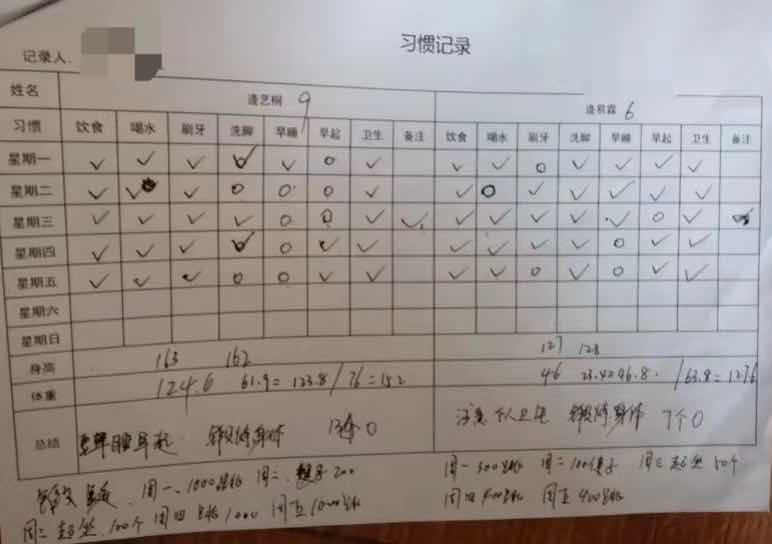 习惯记录
记录人
姓名 逄艺桐 9 6
习惯 饮食 喝水 刷牙 洗脚 早睡 早起 卫生 备注 饮食 喝水 刷牙 洗脚 早睡 早起 卫生 备注
星期一 ✓ ✓ ✓ ✓ ✓ ○ ✓ ✓ ✓ ○ ✓ ✓ ✓ ✓
星期二 ✓ ✓ ✓ ○ ○ ○ ✓ ✓ ○ ✓ ✓ ✓ ✓ ✓
星期三 ✓ ✓ ✓ ✓ ○ ○ ✓ ✓ ✓ ✓ ✓ ✓ ✓ ○ ✓
星期四 ✓ ✓ ✓ ✓ ○ ✓ ✓ ✓ ✓ ✓ ✓ ○ ✓ ✓
星期五 ✓ ✓ ✓ ○ ○ ✓ ✓ ✓ ✓ ○ ✓ ○ ✓ ✓
星期六
星期日
身高 163 162 127 128
体重 124.6 61.9=123.8/76=152 46 /63.8=127.6
总结 早起 锻炼身体 13个○ 注意个人卫生 锻炼身体 7个○
周一、1000 周二、毽子200
周三起坐100个 周四 1000 周五1000
周一300 周二100毽子 周三起坐50个
周四400 周五400